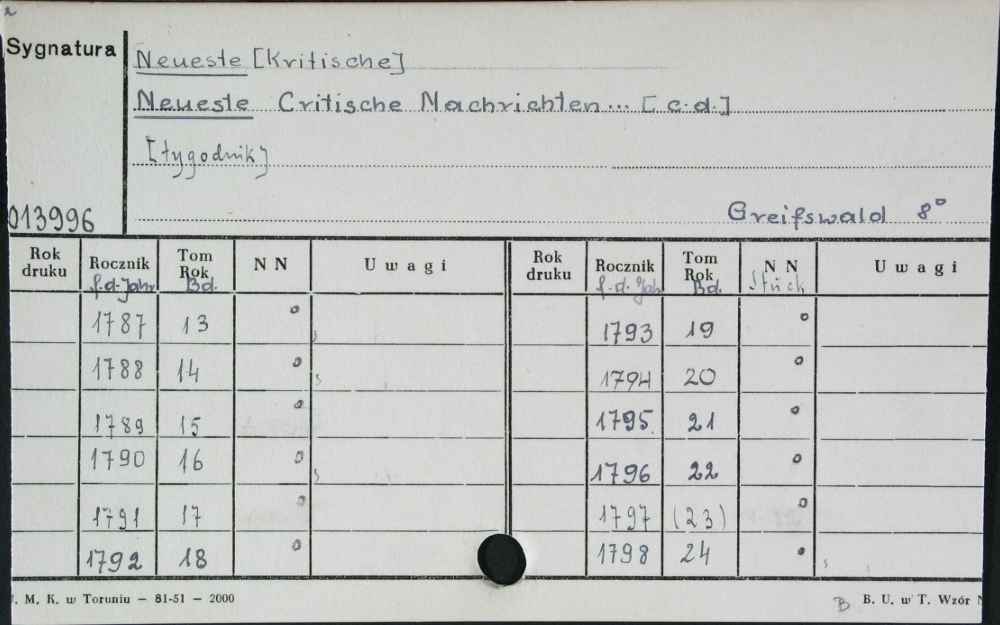 2
Sygnatura
Neueste [Kritische]
Neueste Critische Nachrichten... [c.d.]
[tygodnik]
013996
Greifswald 8°
Rok druku Rocznik f.d. Jahr Tom Rok Bd. N N Uwagi Rok druku Rocznik f.d. Jahr Tom Rok Bd. N N Stück Uwagi
1787 13 ° 1793 19 °
1788 14 ° 1794 20 °
1789 15 ° 1795 21 °
1790 16 ° 1796 22 °
1791 17 ° 1797 (23) °
1792 18 ° 1798 24 °
. M. K. w Toruniu — 81-51 — 2000
B B. U. w T. Wzór N